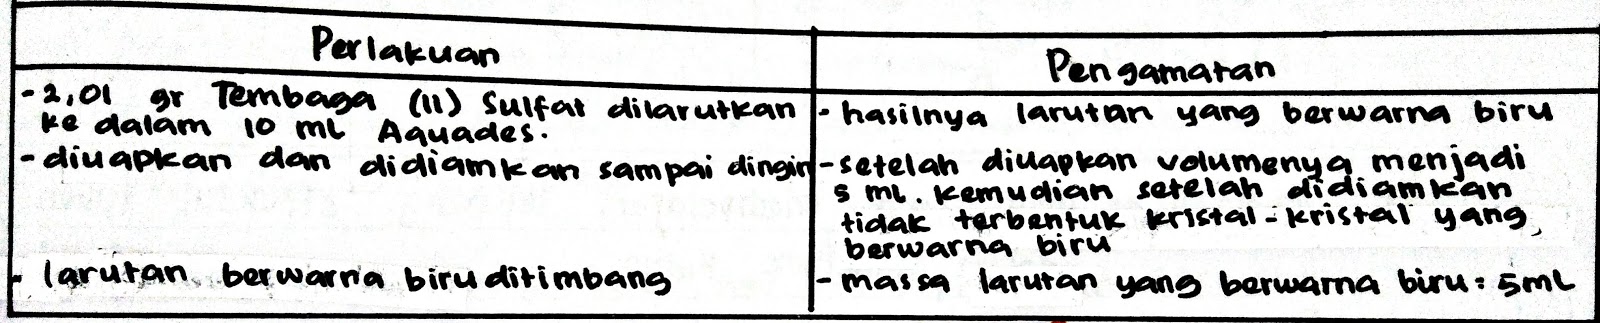 Perlakuan
Pengamatan
- 2,01 gr Tembaga (11) Sulfat dilarutkan
ke dalam 10 mL Aquades.
- hasilnya larutan yang berwarna biru
- diuapkan dan didiamkan sampai dingin
- setelah diuapkan volumenya menjadi
5 mL. kemudian setelah didiamkan
tidak terbentuk kristal-kristal yang
berwarna biru
- larutan berwarna biru ditimbang
- massa larutan yang berwarna biru = 5mL